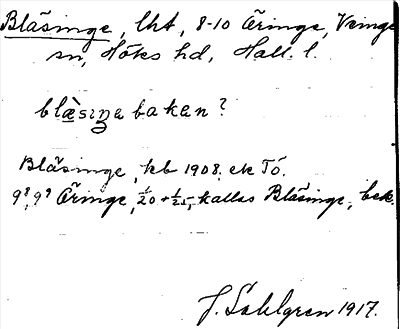 Bläsinge, lht, 8-10 Äringe, Veinge
sn, Höks hd, Hall. l.
blæ̀sıŋa bakan?
Bläsinge, kb 1908. ek Tö.
9⁸, 9⁹ Äringe, 1/20 + 1/25, kallas Bläsinge, bek.
J. Sahlgren 1917.